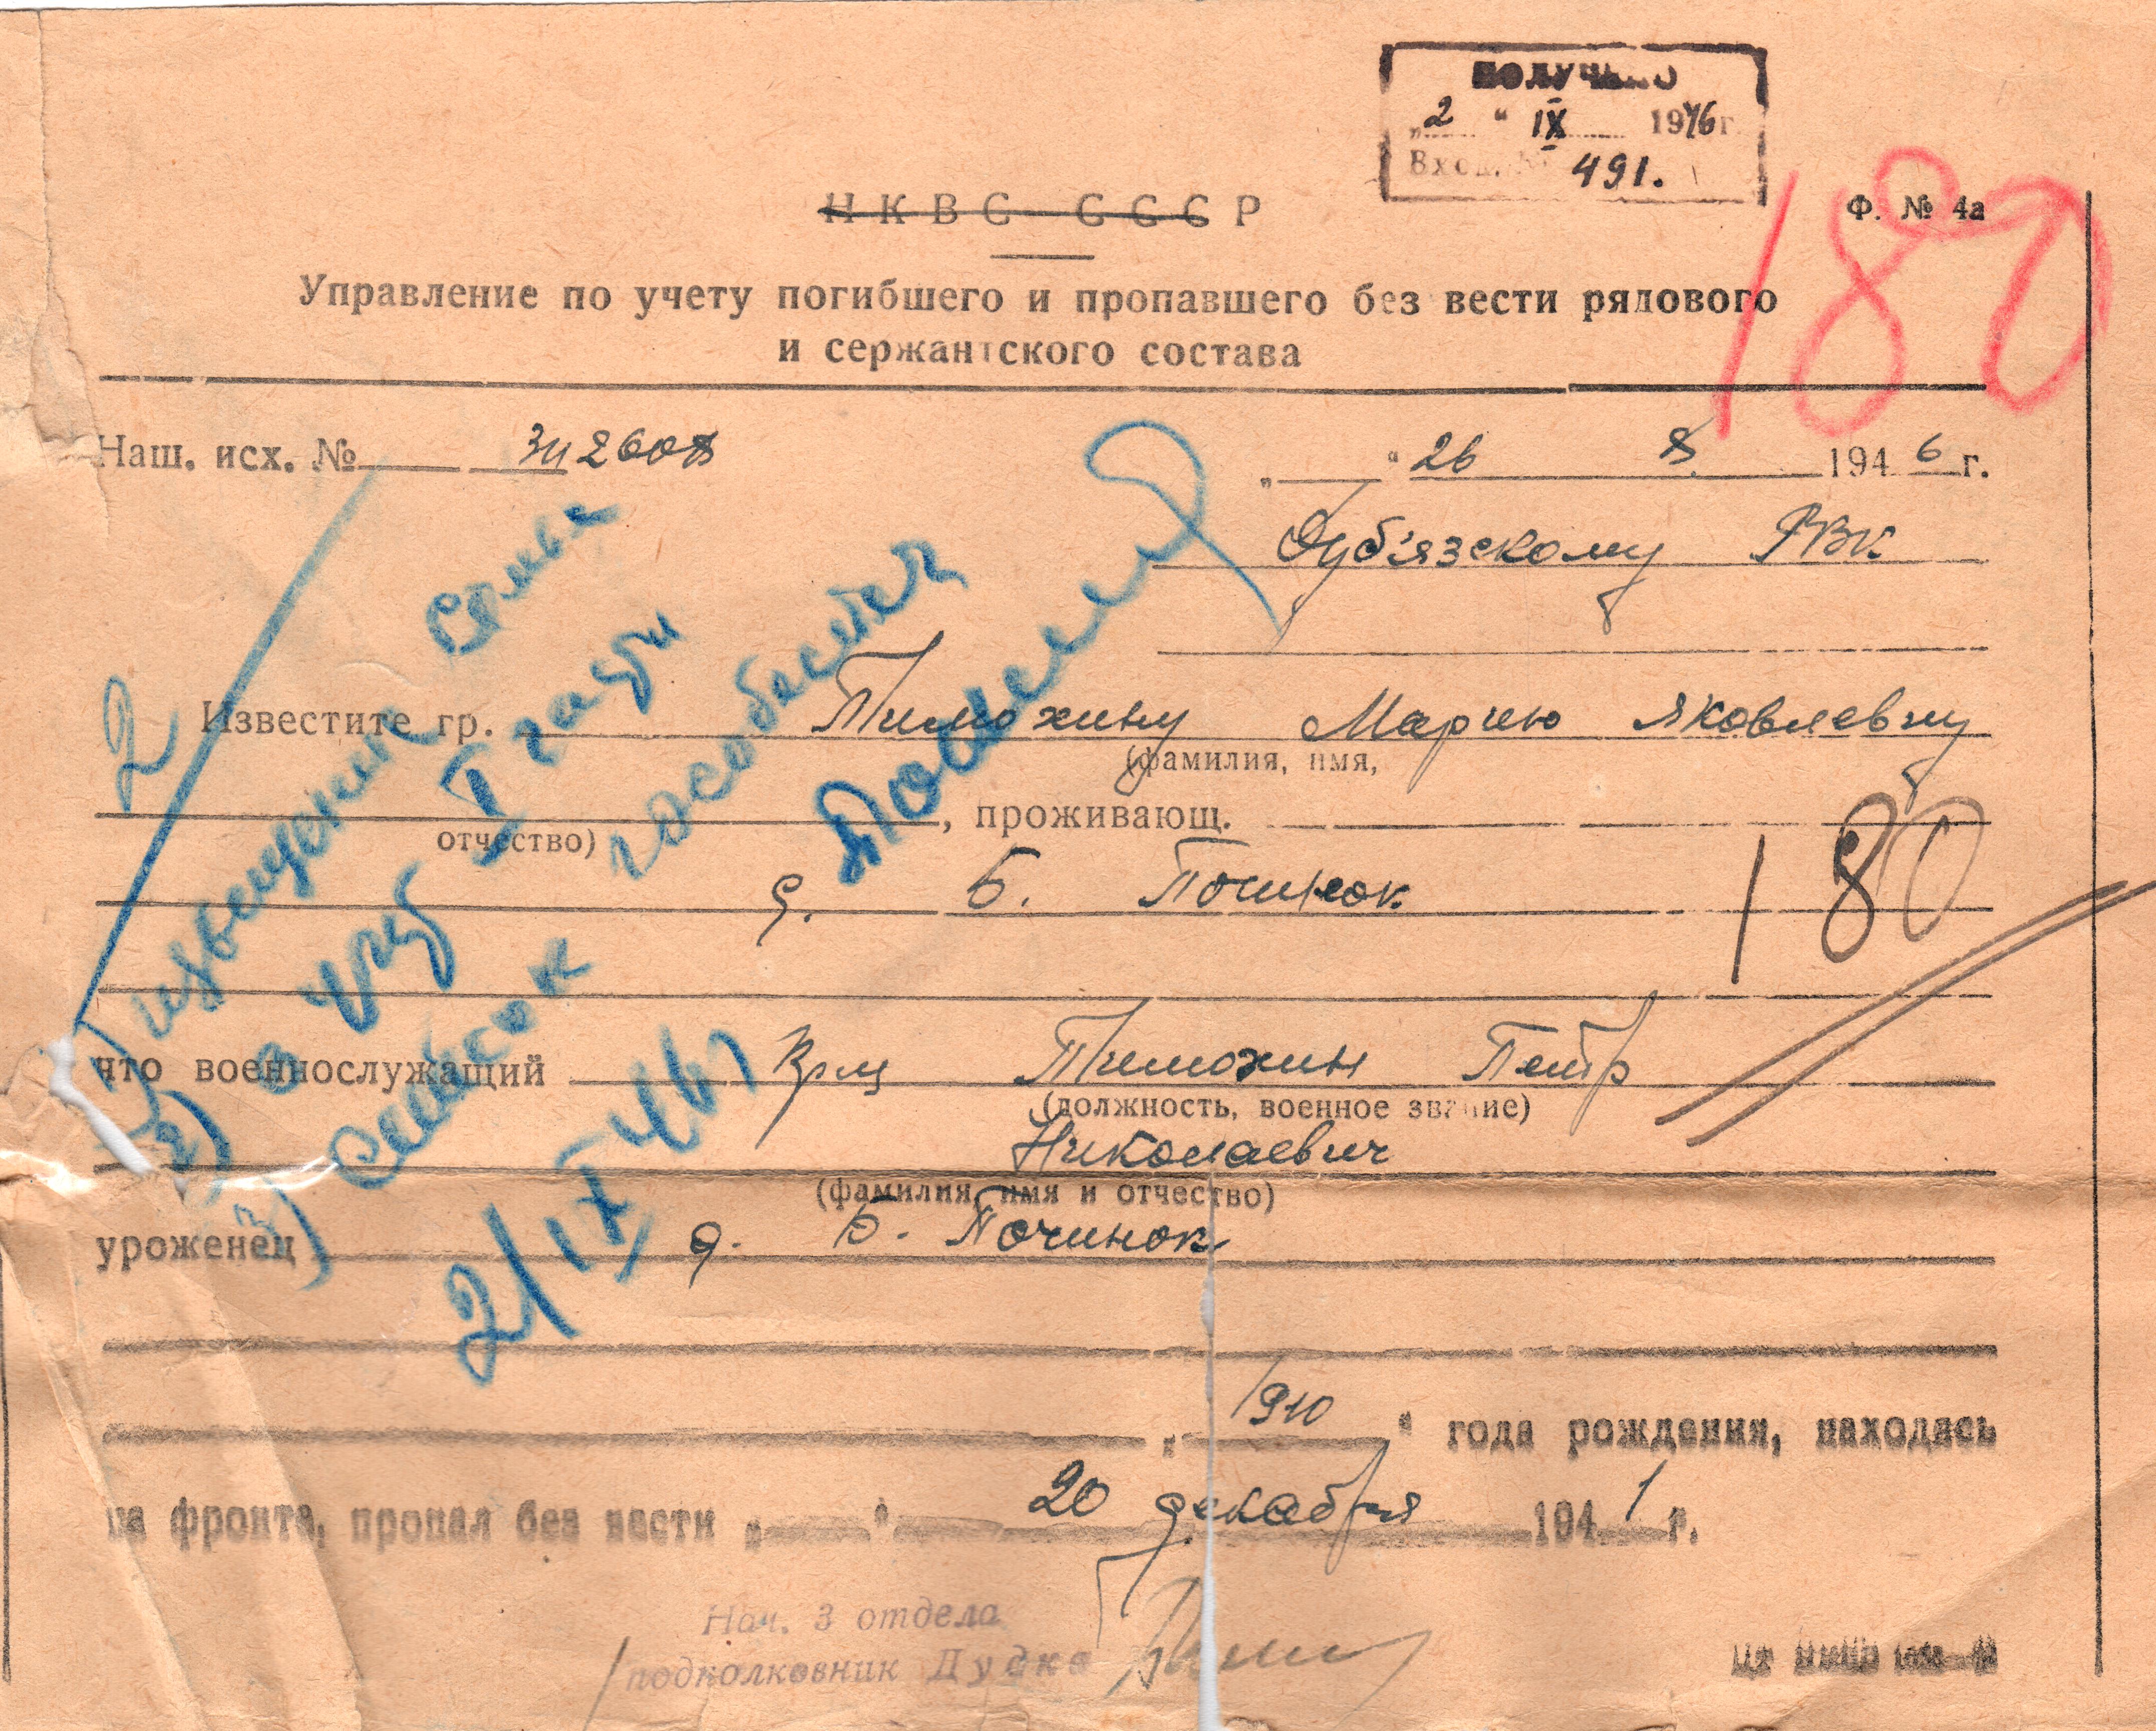 Получено
„2“ IX 1946г
Вход. № 491.
НКВС СССР
Ф. № 4а
180
Управление по учету погибшего и пропавшего без вести рядового
и сержантского состава
Наш. исх. № 3и2608
„ “ 26 8. 1946 г.
Дуб'язскому РВК
Известите гр. Тимохину Марию Яковлевну
(фамилия, имя,
отчество)
, проживающ.
д. Б. Починок
180
что военнослужащий Крц Тимохин Петр
(должность, военное звание)
Николаевич
(фамилия, имя и отчество)
уроженец д. Б. Починок
„1910“ года рождения, находясь
на фронте, пропал без вести „ “ 20 декабря 1941 г.
Нач. 3 отдела
подполковник Дудко
2
1) извещение Семье
2) в 1 части
список
2/IX 46